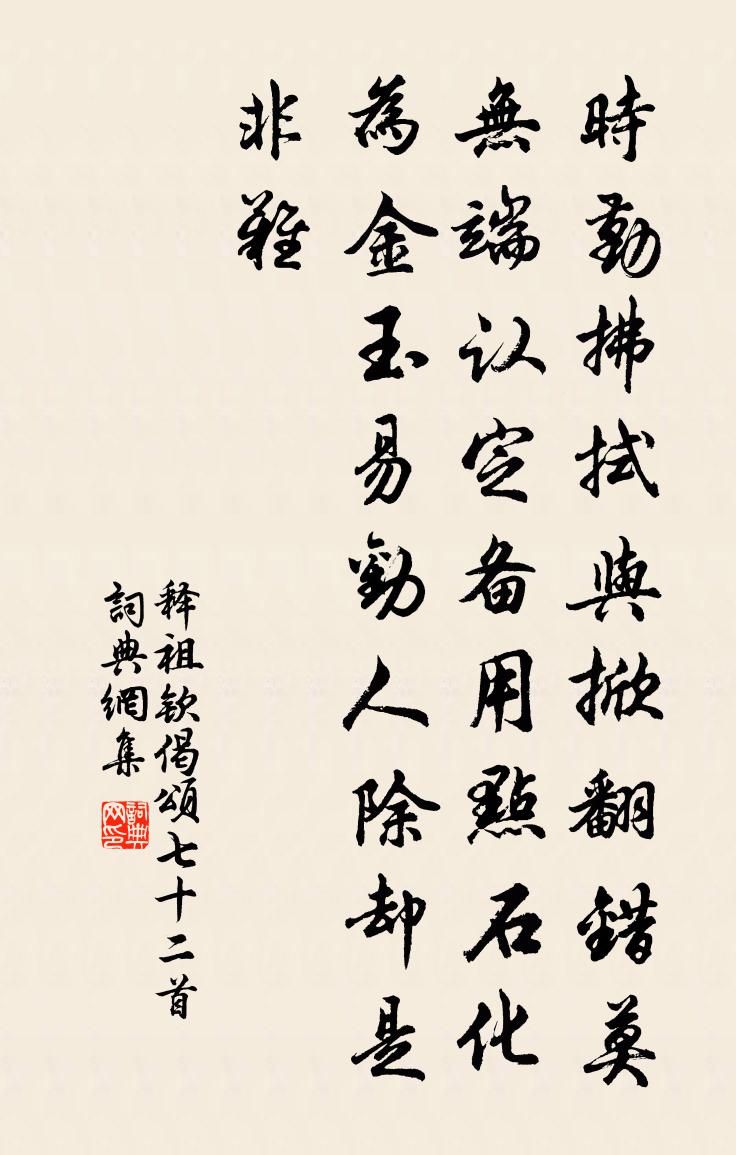 時勤拂拭與掀翻錯莫
無端认定备用點石化
為金玉易勸人除却是
非難
释祖钦偈頌七十二首
詞典網集
詞典
网印